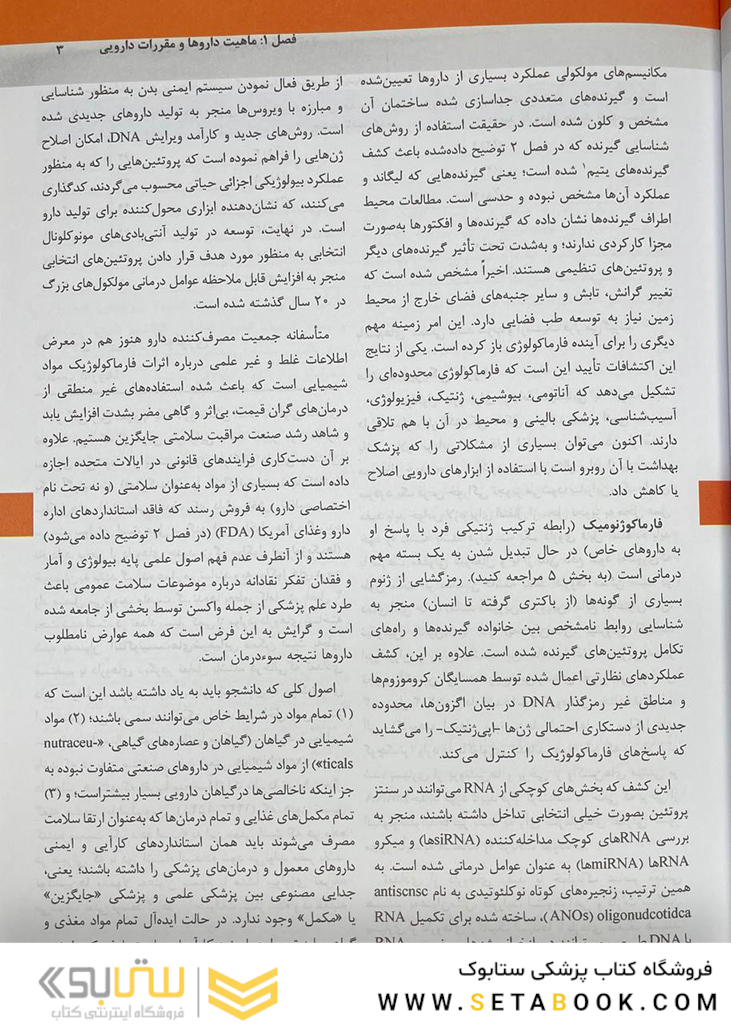 فصل ۱: ماهیت داروها و مقررات دارویی ۳
مکانیسم‌های مولکولی عملکرد بسیاری از داروها تعیین‌شده
است و گیرنده‌های متعددی جداسازی شده ساختمان آن
مشخص و کلون شده است. در حقیقت استفاده از روش‌های
شناسایی گیرنده که در فصل ۲ توضیح داده‌شده باعث کشف
گیرنده‌های یتیم۱ شده است؛ یعنی گیرنده‌هایی که لیگاند و
عملکرد آن‌ها مشخص نبوده و حدسی است. مطالعات محیط
اطراف گیرنده‌ها نشان داده که گیرنده‌ها و افکتورها به‌صورت
مجزا کارکردی ندارند؛ و به‌شدت تحت تأثیر گیرنده‌های دیگر
و پروتئین‌های تنظیمی هستند. اخیراً مشخص شده است که
تغییر گرانش، تابش و سایر جنبه‌های فضای خارج از محیط
زمین نیاز به توسعه طب فضایی دارد. این امر زمینه مهم
دیگری را برای آینده فارماکولوژی باز کرده است. یکی از نتایج
این اکتشافات تأیید این است که فارماکولوژی محدوده‌ای را
تشکیل می‌دهد که آناتومی، بیوشیمی، ژنتیک، فیزیولوژی،
آسیب‌شناسی، پزشکی بالینی و محیط در آن با هم تلاقی
دارند. اکنون می‌توان بسیاری از مشکلاتی را که پزشک
بهداشت با آن روبرو است با استفاده از ابزارهای دارویی اصلاح
یا کاهش داد.
فارماکوژنومیک (رابطه ترکیب ژنتیکی فرد با پاسخ او
به داروهای خاص) در حال تبدیل شدن به یک بسته مهم
درمانی است (به بخش ۵ مراجعه کنید). رمزگشایی از ژنوم
بسیاری از گونه‌ها (از باکتری گرفته تا انسان) منجر به
شناسایی روابط نامشخص بین خانواده گیرنده‌ها و راه‌های
تکامل پروتئین‌های گیرنده شده است. علاوه بر این، کشف
عملکردهای نظارتی اعمال شده توسط همسایگان کروموزوم‌ها
و مناطق غیر رمزگذار DNA در بیان اگزون‌ها، محدوده
جدیدی از دستکاری احتمالی ژن‌ها -اپی‌ژنتیک- را می‌گشاید
که پاسخ‌های فارماکولوژیک را کنترل می‌کند.
این کشف که بخش‌های کوچکی از RNA می‌توانند در سنتز
پروتئین بصورت خیلی انتخابی تداخل داشته باشند، منجر به
بررسی RNAهای کوچک مداخله‌کننده (siRNAها) و میکرو
RNAها (miRNAها) به عنوان عوامل درمانی شده است. به
همین ترتیب، زنجیره‌های کوتاه نوکلئوتیدی به نام antiscnsc
oligonudcotidca (ANOs)، ساخته شده برای تکمیل RNA
از طریق فعال نمودن سیستم ایمنی بدن به منظور شناسایی
و مبارزه با ویروس‌ها منجر به تولید داروهای جدیدی شده
است. روش‌های جدید و کارآمد ویرایش DNA، امکان اصلاح
ژن‌هایی را فراهم نموده است که پروتئین‌هایی را که به منظور
عملکرد بیولوژیکی اجزائی حیاتی محسوب می‌گردند، کدگذاری
می‌کنند، که نشان‌دهنده ابزاری محول‌کننده برای تولید دارو
است. در نهایت، توسعه در تولید آنتی‌بادی‌های مونوکلونال
انتخابی به منظور مورد هدف قرار دادن پروتئین‌های انتخابی
منجر به افزایش قابل ملاحظه عوامل درمانی مولکول‌های بزرگ
در ۲۰ سال گذشته شده است.
متأسفانه جمعیت مصرف‌کننده دارو هنوز هم در معرض
اطلاعات غلط و غیر علمی درباره اثرات فارماکولوژیک مواد
شیمیایی است که باعث شده استفاده‌های غیر منطقی از
درمان‌های گران قیمت، بی‌اثر و گاهی مضر بشدت افزایش یابد
و شاهد رشد صنعت مراقبت سلامتی جایگزین هستیم. علاوه
بر آن دست‌کاری فرایندهای قانونی در ایالات متحده اجازه
داده است که بسیاری از مواد به‌عنوان سلامتی (و نه تحت نام
اختصاصی دارو) به فروش رسند که فاقد استانداردهای اداره
دارو وغذای آمریکا (FDA) (در فصل ۲ توضیح داده می‌شود)
هستند و از آنطرف عدم فهم اصول علمی پایه بیولوژی و آمار
و فقدان تفکر نقادانه درباره موضوعات سلامت عمومی باعث
طرد علم پزشکی از جمله واکسن توسط بخشی از جامعه شده
است و گرایش به این فرض است که همه عوارض نامطلوب
داروها نتیجه سوءدرمان است.
اصول کلی که دانشجو باید به یاد داشته باشد این است که
(۱) تمام مواد در شرایط خاص می‌توانند سمی باشند؛ (۲) مواد
شیمیایی در گیاهان (گیاهان و عصاره‌های گیاهی، «nutraceu-
ticals») از مواد شیمیایی در داروهای صنعتی متفاوت نبوده به
جز اینکه ناخالصی‌ها درگیاهان دارویی بسیار بیشتراست؛ و (۳)
تمام مکمل‌های غذایی و تمام درمان‌ها که به‌عنوان ارتقا سلامت
مصرف می‌شوند باید همان استانداردهای کارآیی و ایمنی
داروهای معمول و درمان‌های پزشکی را داشته باشند؛ یعنی،
جدایی مصنوعی بین پزشکی علمی و پزشکی «جایگزین»
یا «مکمل» وجود ندارد. در حالت ایده‌آل تمام مواد مغذی و
فروشگاه کتاب پزشکی ستابوک
WWW.SETABOOK.COM
ستابوک
فروشگاه اینترنتی کتاب